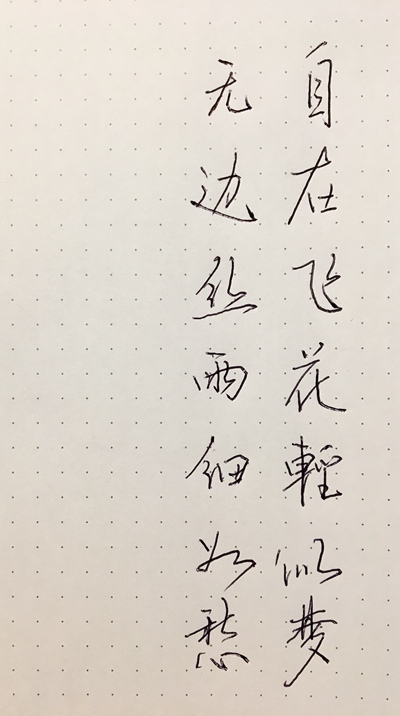 自在飞花輕似梦
无边丝雨细如愁